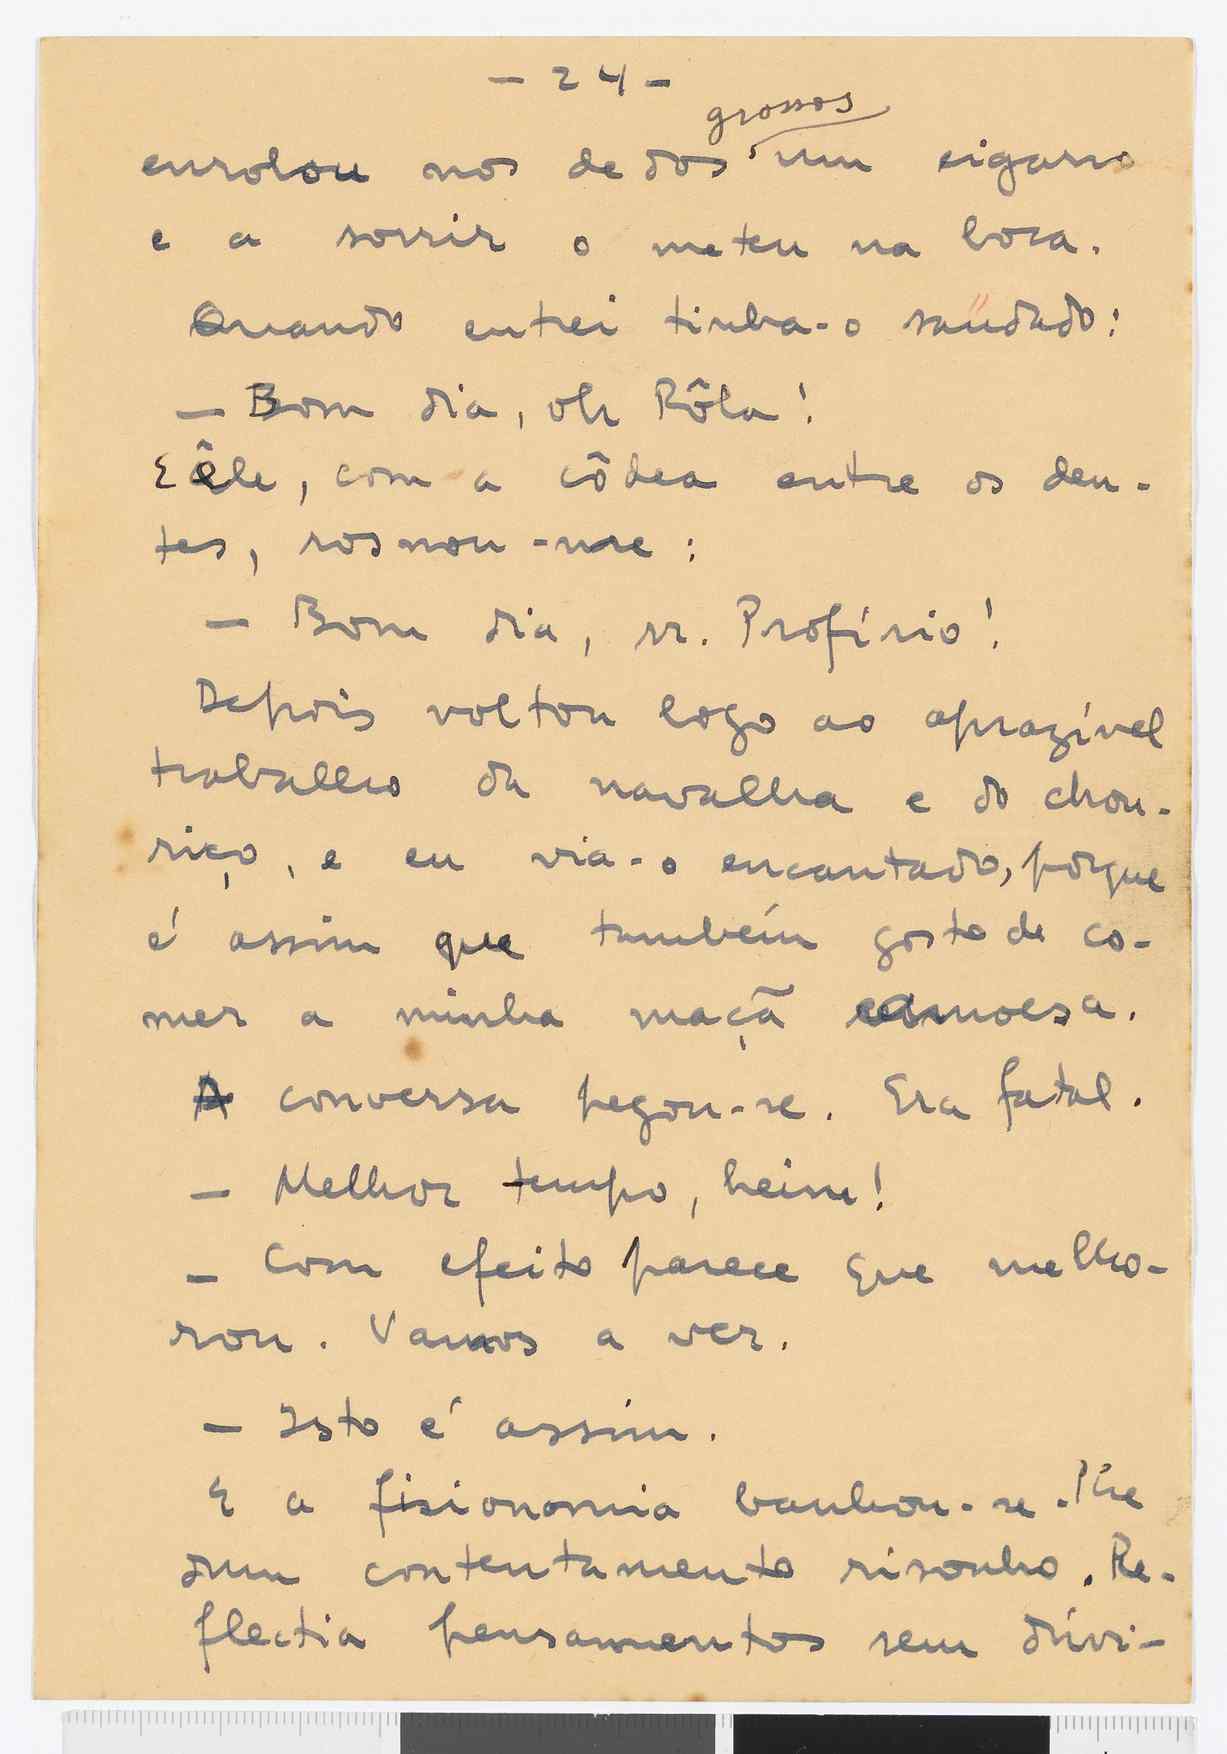 - 24 -
grossos
enrolou nos dedos um cigarro
e a sorrir o meteu na boca.
Quando entrei tinha-o saudado:
— Bom dia, oh Rôla!
E êle, com a côdea entre os den-
tes, rosnou-me:
— Bom dia, sr. Profírio!
Depois voltou logo ao aprazível
trabalho da navalha e do chou-
riço, e eu via-o encantado, porque
é assim que também gosto de co-
mer a minha maçã camoesa.
A conversa pegou-se. Era fatal.
— Melhor tempo, heim!
— Com efeito parece que melho-
rou. Vamos a ver.
— Isto é assim.
E a fisionomia banhou-se-lhe
dum contentamento risonho. Re-
flectia pensamentos sem dúvi-